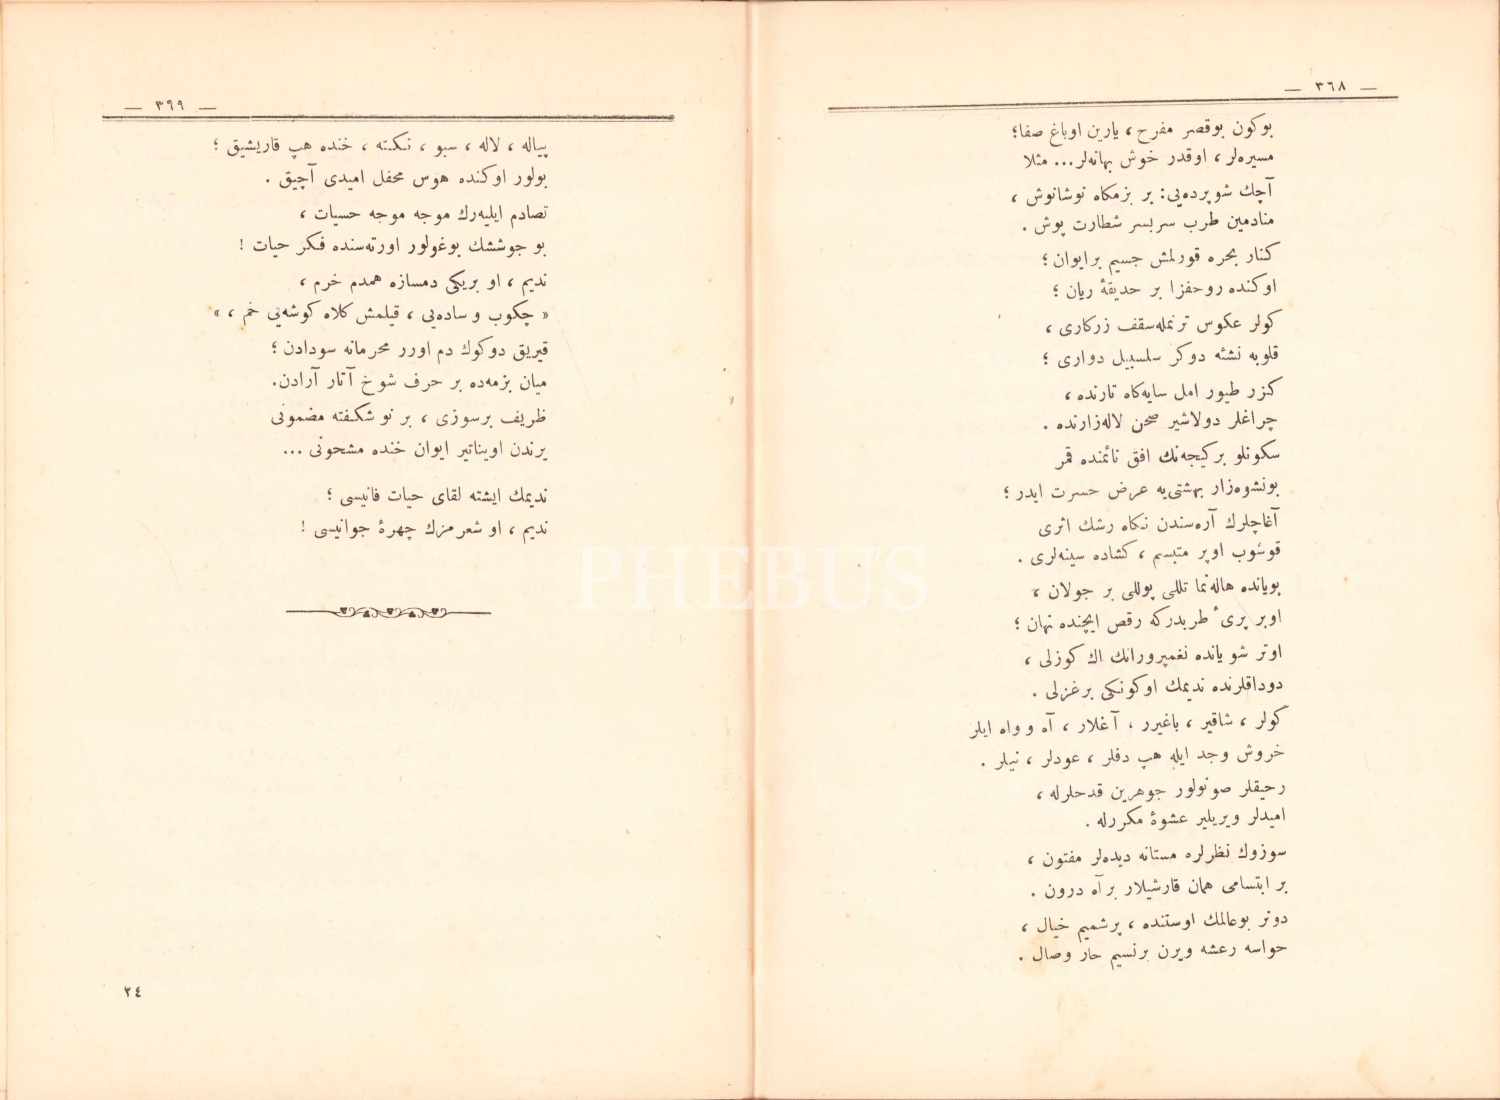 — ٣٦٨ —
بوكون بوقصر مفرح ، يارين اوباغ صفا؛
مسيره‌لر ، اوقدر خوش بهانه‌لر... مثلا
آچك شوپرده‌يى: بر بزمكاه نوشانوش ،
منادمين طرب سربسر شطارت پوش .
كنار بحره قورلمش جسيم برايوان ؛
اوكنده روحفزا بر حديقهٔ ريان ؛
كولر عكوس ترنمله‌سقف زركارى ،
قلوبه نشئه دوكر سلسبيل دوارى ؛
كنزر طيور امل سايه‌كاه تارنده ،
چراغلر دولاشير صحن لاله‌زارنده .
سكونلو بركيجه‌نك افق نائمنده قمر
بونشوه‌زار بهشتى‌يه عرض حسرت ايدر ؛
آغاچلرك آره‌سندن نكاه رشك اثرى
قوشوب اوپر متبسم ، كشاده سينه‌لرى .
بويانده هاله‌نما تللى پوللى بر جولان ،
اوبر پرىٔ طربدركه رقص ايچنده نهان ؛
اوتر شو يانده نغمپرورانك اك كوزلى ،
دوداقلرنده نديمك اوكونكى برغزلى .
كولر ، شاقير ، باغيرر ، آغلار ، آه و واه ايلر
خروش وجد ايله هپ دفلر ، عودلر ، نيلر .
رحيقلر صونولور جوهرين قدحلرله ،
اميدلر ويريلير عشوهٔ مكررله .
سوزوك نظرلره مستانه ديده‌لر مفتون ،
بر ابتسامى همان قارشيلار برآه درون .
دونر بوعالمك اوستنده ، پرشميم خيال ،
حواسه رعشه ويرن برنسيم حار وصال .
— ٣٦٩ —
پياله ، لاله ، سبو ، نكته ، خنده هپ قاريشيق ؛
بولور اوكنده هوس محفل اميدى آچيق .
تصادم ايليه‌رك موجه موجه حسيات ،
بو جوششك بوغولور اورته‌سنده فكر حيات !
نديم ، او بريكى دمسازه همدم خرم ،
« چكوب و ساده‌يى ، قيلمش كلاه كوشه‌يى خم ، »
قيريق دوكوك دم اورر محرمانه سودادن ؛
ميان بزمه‌ده بر حرف شوخ آتار آرادن.
ظريف برسوزى ، بر نو شكفته مضمونى
يرندن اويناتير ايوان خنده مشحونى ...
نديمك ايشته لقاى حيات فانيسى ؛
نديم ، او شعرمزك چهرهٔ جوانيسى !
٢٤
PHEBUS